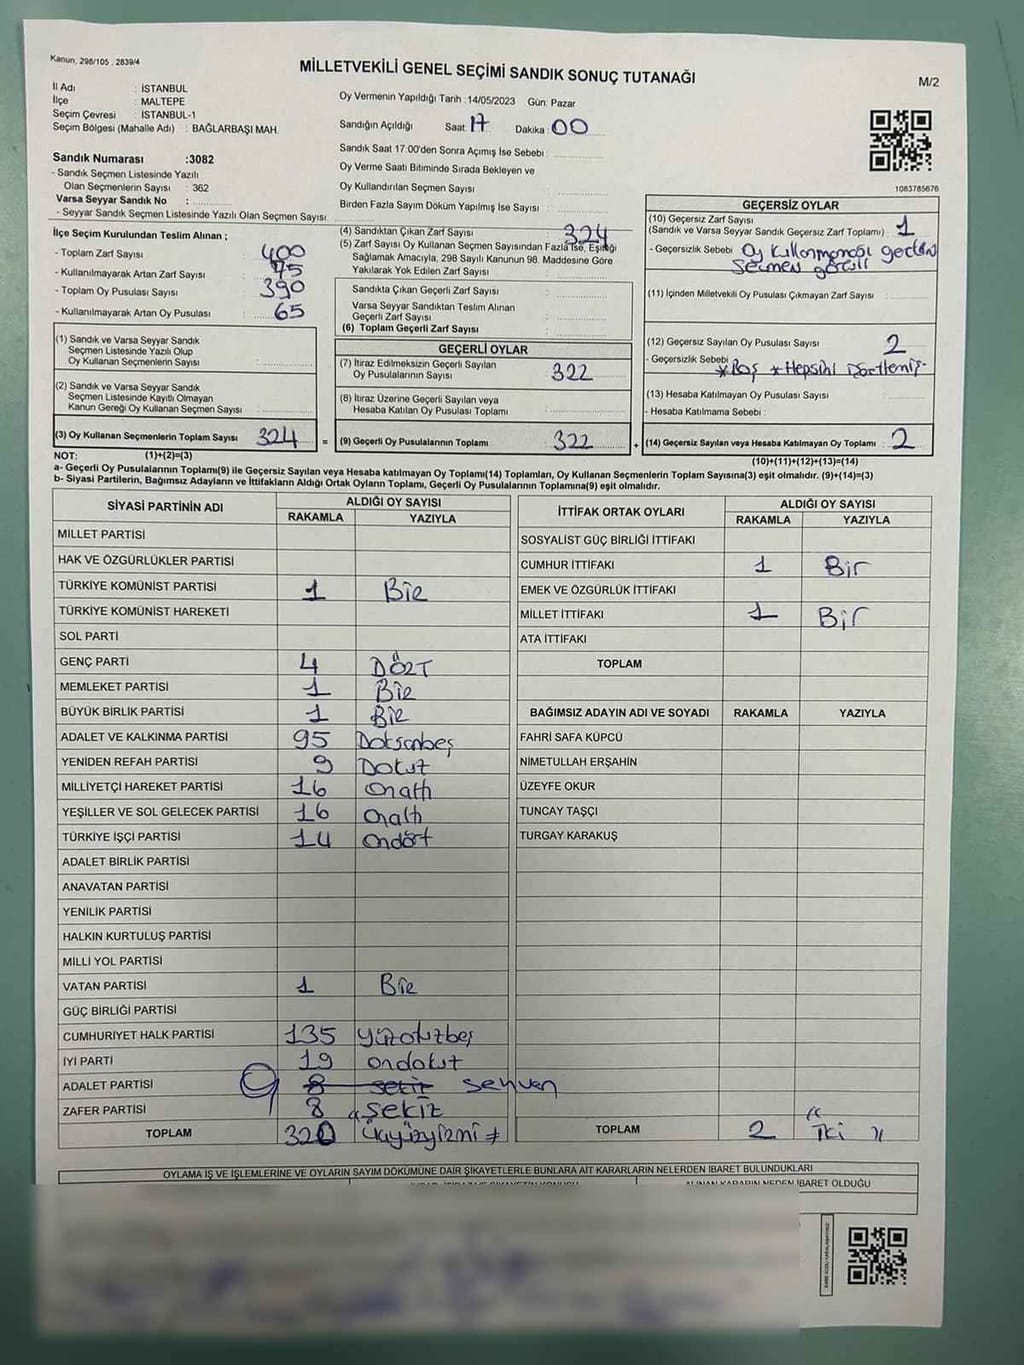 Kanun, 298/105 , 2839/4
MİLLETVEKİLİ GENEL SEÇİMİ SANDIK SONUÇ TUTANAĞI
M/2
İl Adı : İSTANBUL
İlçe : MALTEPE
Seçim Çevresi : İSTANBUL-1
Seçim Bölgesi (Mahalle Adı) : BAĞLARBAŞI MAH.
Oy Vermenin Yapıldığı Tarih :14/05/2023 Gün: Pazar
Sandığın Açıldığı Saat: 17 Dakika: 00
Sandık Saat 17:00'den Sonra Açımış İse Sebebi :
Oy Verme Saati Bitiminde Sırada Bekleyen ve
Oy Kullandırılan Seçmen Sayısı :
Birden Fazla Sayım Döküm Yapılmış İse Sayısı :
Sandık Numarası :3082
- Sandık Seçmen Listesinde Yazılı
Olan Seçmenlerin Sayısı : 362
Varsa Seyyar Sandık No :
- Seyyar Sandık Seçmen Listesinde Yazılı Olan Seçmen Sayısı:
1083785676
İlçe Seçim Kurulundan Teslim Alınan ;
- Toplam Zarf Sayısı : 400
- Kullanılmayarak Artan Zarf Sayısı : 75
- Toplam Oy Pusulası Sayısı : 390
- Kullanılmayarak Artan Oy Pusulası : 65
(1) Sandık ve Varsa Seyyar Sandık
Seçmen Listesinde Yazılı Olup
Oy Kullanan Seçmenlerin Sayısı :
(2) Sandık ve Varsa Seyyar Sandık
Seçmen Listesinde Kayıtlı Olmayan
Kanun Gereği Oy Kullanan Seçmen Sayısı :
(3) Oy Kullanan Seçmenlerin Toplam Sayısı : 324 =
(4) Sandıktan Çıkan Zarf Sayısı : 324
(5) Zarf Sayısı Oy Kullanan Seçmen Sayısından Fazla İse, Eşitliği
Sağlamak Amacıyla, 298 Sayılı Kanunun 98. Maddesine Göre
Yakılarak Yok Edilen Zarf Sayısı :
Sandıkta Çıkan Geçerli Zarf Sayısı :
Varsa Seyyar Sandıktan Teslim Alınan
Geçerli Zarf Sayısı :
(6) Toplam Geçerli Zarf Sayısı :
GEÇERLİ OYLAR
(7) İtiraz Edilmeksizin Geçerli Sayılan
Oy Pusulalarının Sayısı : 322
(8) İtiraz Üzerine Geçerli Sayılan veya
Hesaba Katılan Oy Pusulası Toplamı :
(9) Geçerli Oy Pusulalarının Toplamı : 322 +
GEÇERSİZ OYLAR
(10) Geçersiz Zarf Sayısı
(Sandık ve Varsa Seyyar Sandık Geçersiz Zarf Toplamı) : 1
- Geçersizlik Sebebi : Oy Kullanmamasi
Seçmen
(11) İçinden Milletvekili Oy Pusulası Çıkmayan Zarf Sayısı :
(12) Geçersiz Sayılan Oy Pusulası Sayısı : 2
- Geçersizlik Sebebi : *Boş *Hepsini
(13) Hesaba Katılmayan Oy Pusulası Sayısı :
- Hesaba Katılmama Sebebi :
(14) Geçersiz Sayılan veya Hesaba Katılmayan Oy Toplamı : 2
NOT: (1)+(2)=(3)
(10)+(11)+(12)+(13)=(14)
a- Geçerli Oy Pusulalarının Toplamı(9) ile Geçersiz Sayılan veya Hesaba katılmayan Oy Toplamı(14) Toplamları, Oy Kullanan Seçmenlerin Toplam Sayısına(3) eşit olmalıdır. (9)+(14)=(3)
b- Siyasi Partilerin, Bağımsız Adayların ve İttifakların Aldığı Ortak Oyların Toplamı, Geçerli Oy Pusulalarının Toplamına(9) eşit olmalıdır.
SİYASİ PARTİNİN ADI ALDIĞI OY SAYISI
RAKAMLA YAZIYLA
MİLLET PARTİSİ
HAK VE ÖZGÜRLÜKLER PARTİSİ
TÜRKİYE KOMÜNİST PARTİSİ 1 Bir
TÜRKİYE KOMÜNİST HAREKETİ
SOL PARTİ
GENÇ PARTİ 4 DÖRT
MEMLEKET PARTİSİ 1 Bir
BÜYÜK BİRLİK PARTİSİ 1 Bir
ADALET VE KALKINMA PARTİSİ 95 Doksanbeş
YENİDEN REFAH PARTİSİ 9 Dokuz
MİLLİYETÇİ HAREKET PARTİSİ 16 Onaltı
YEŞİLLER VE SOL GELECEK PARTİSİ 16 Onaltı
TÜRKİYE İŞÇİ PARTİSİ 14 Ondört
ADALET BİRLİK PARTİSİ
ANAVATAN PARTİSİ
YENİLİK PARTİSİ
HALKIN KURTULUŞ PARTİSİ
MİLLİ YOL PARTİSİ
VATAN PARTİSİ 1 Bir
GÜÇ BİRLİĞİ PARTİSİ
CUMHURİYET HALK PARTİSİ 135 yüzotuzbeş
İYİ PARTİ 19 ondokuz
ADALET PARTİSİ 8 sekiz sehven
ZAFER PARTİSİ 8 "sekiz
TOPLAM 320 üçyüzyirmi
İTTİFAK ORTAK OYLARI ALDIĞI OY SAYISI
RAKAMLA YAZIYLA
SOSYALİST GÜÇ BİRLİĞİ İTTİFAKI
CUMHUR İTTİFAKI 1 Bir
EMEK VE ÖZGÜRLÜK İTTİFAKI
MİLLET İTTİFAKI 1 Bir
ATA İTTİFAKI
TOPLAM
BAĞIMSIZ ADAYIN ADI VE SOYADI RAKAMLA YAZIYLA
FAHRİ SAFA KÜPCÜ
NİMETULLAH ERŞAHİN
ÜZEYFE OKUR
TUNCAY TAŞÇI
TURGAY KARAKUŞ
TOPLAM 2 "iki"
OYLAMA İŞ VE İŞLEMLERİNE VE OYLARIN SAYIM DÖKÜMÜNE DAİR ŞİKAYETLERLE BUNLARA AİT KARARLARIN NELERDEN İBARET BULUNDUKLARI
ALINAN KARARIN NEDEN İBARET OLDUĞU